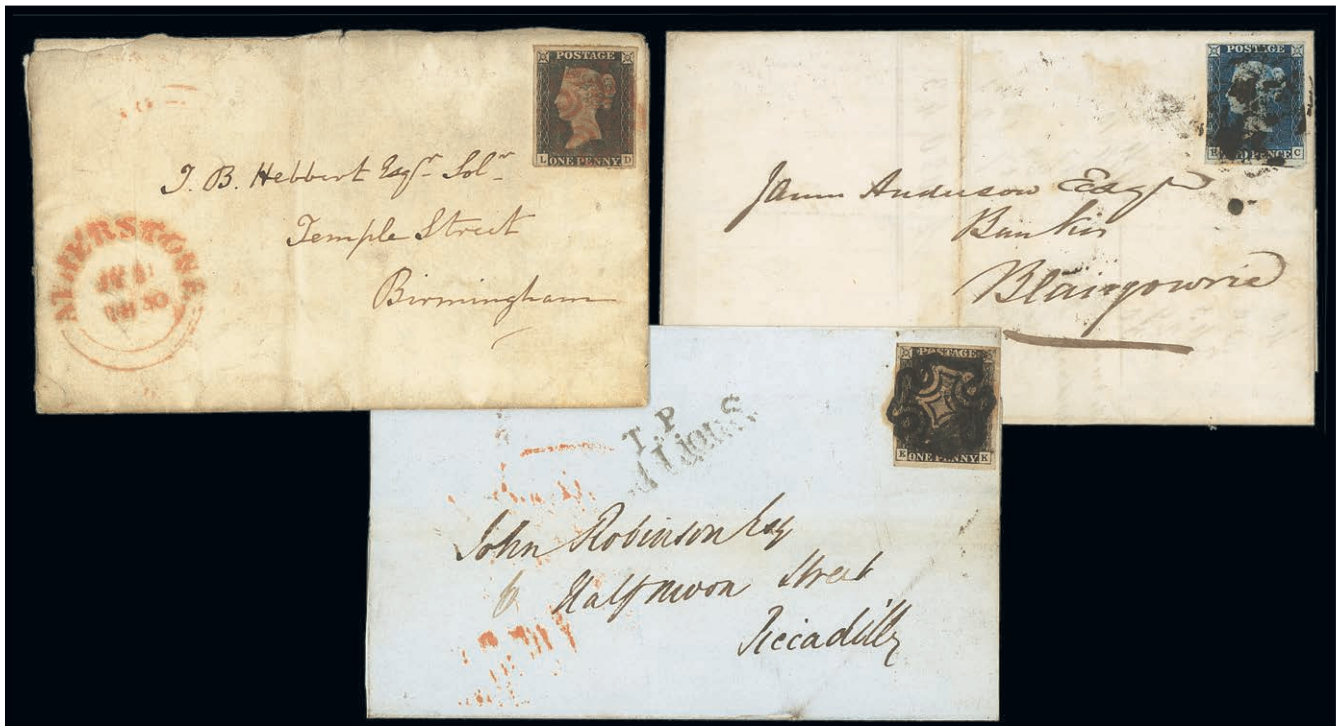 POSTAGE
L ONE PENNY D
J. B. Hebbert Esqr. Solr.
Temple Street
Birmingham
ATHERSTONE
POSTAGE
PENCE C
James Anderson Esqr
Banker
Blairgowrie
POSTAGE
E ONE PENNY K
T.P
John Robinson Esq
6 Halfmoon Street
Piccadilly